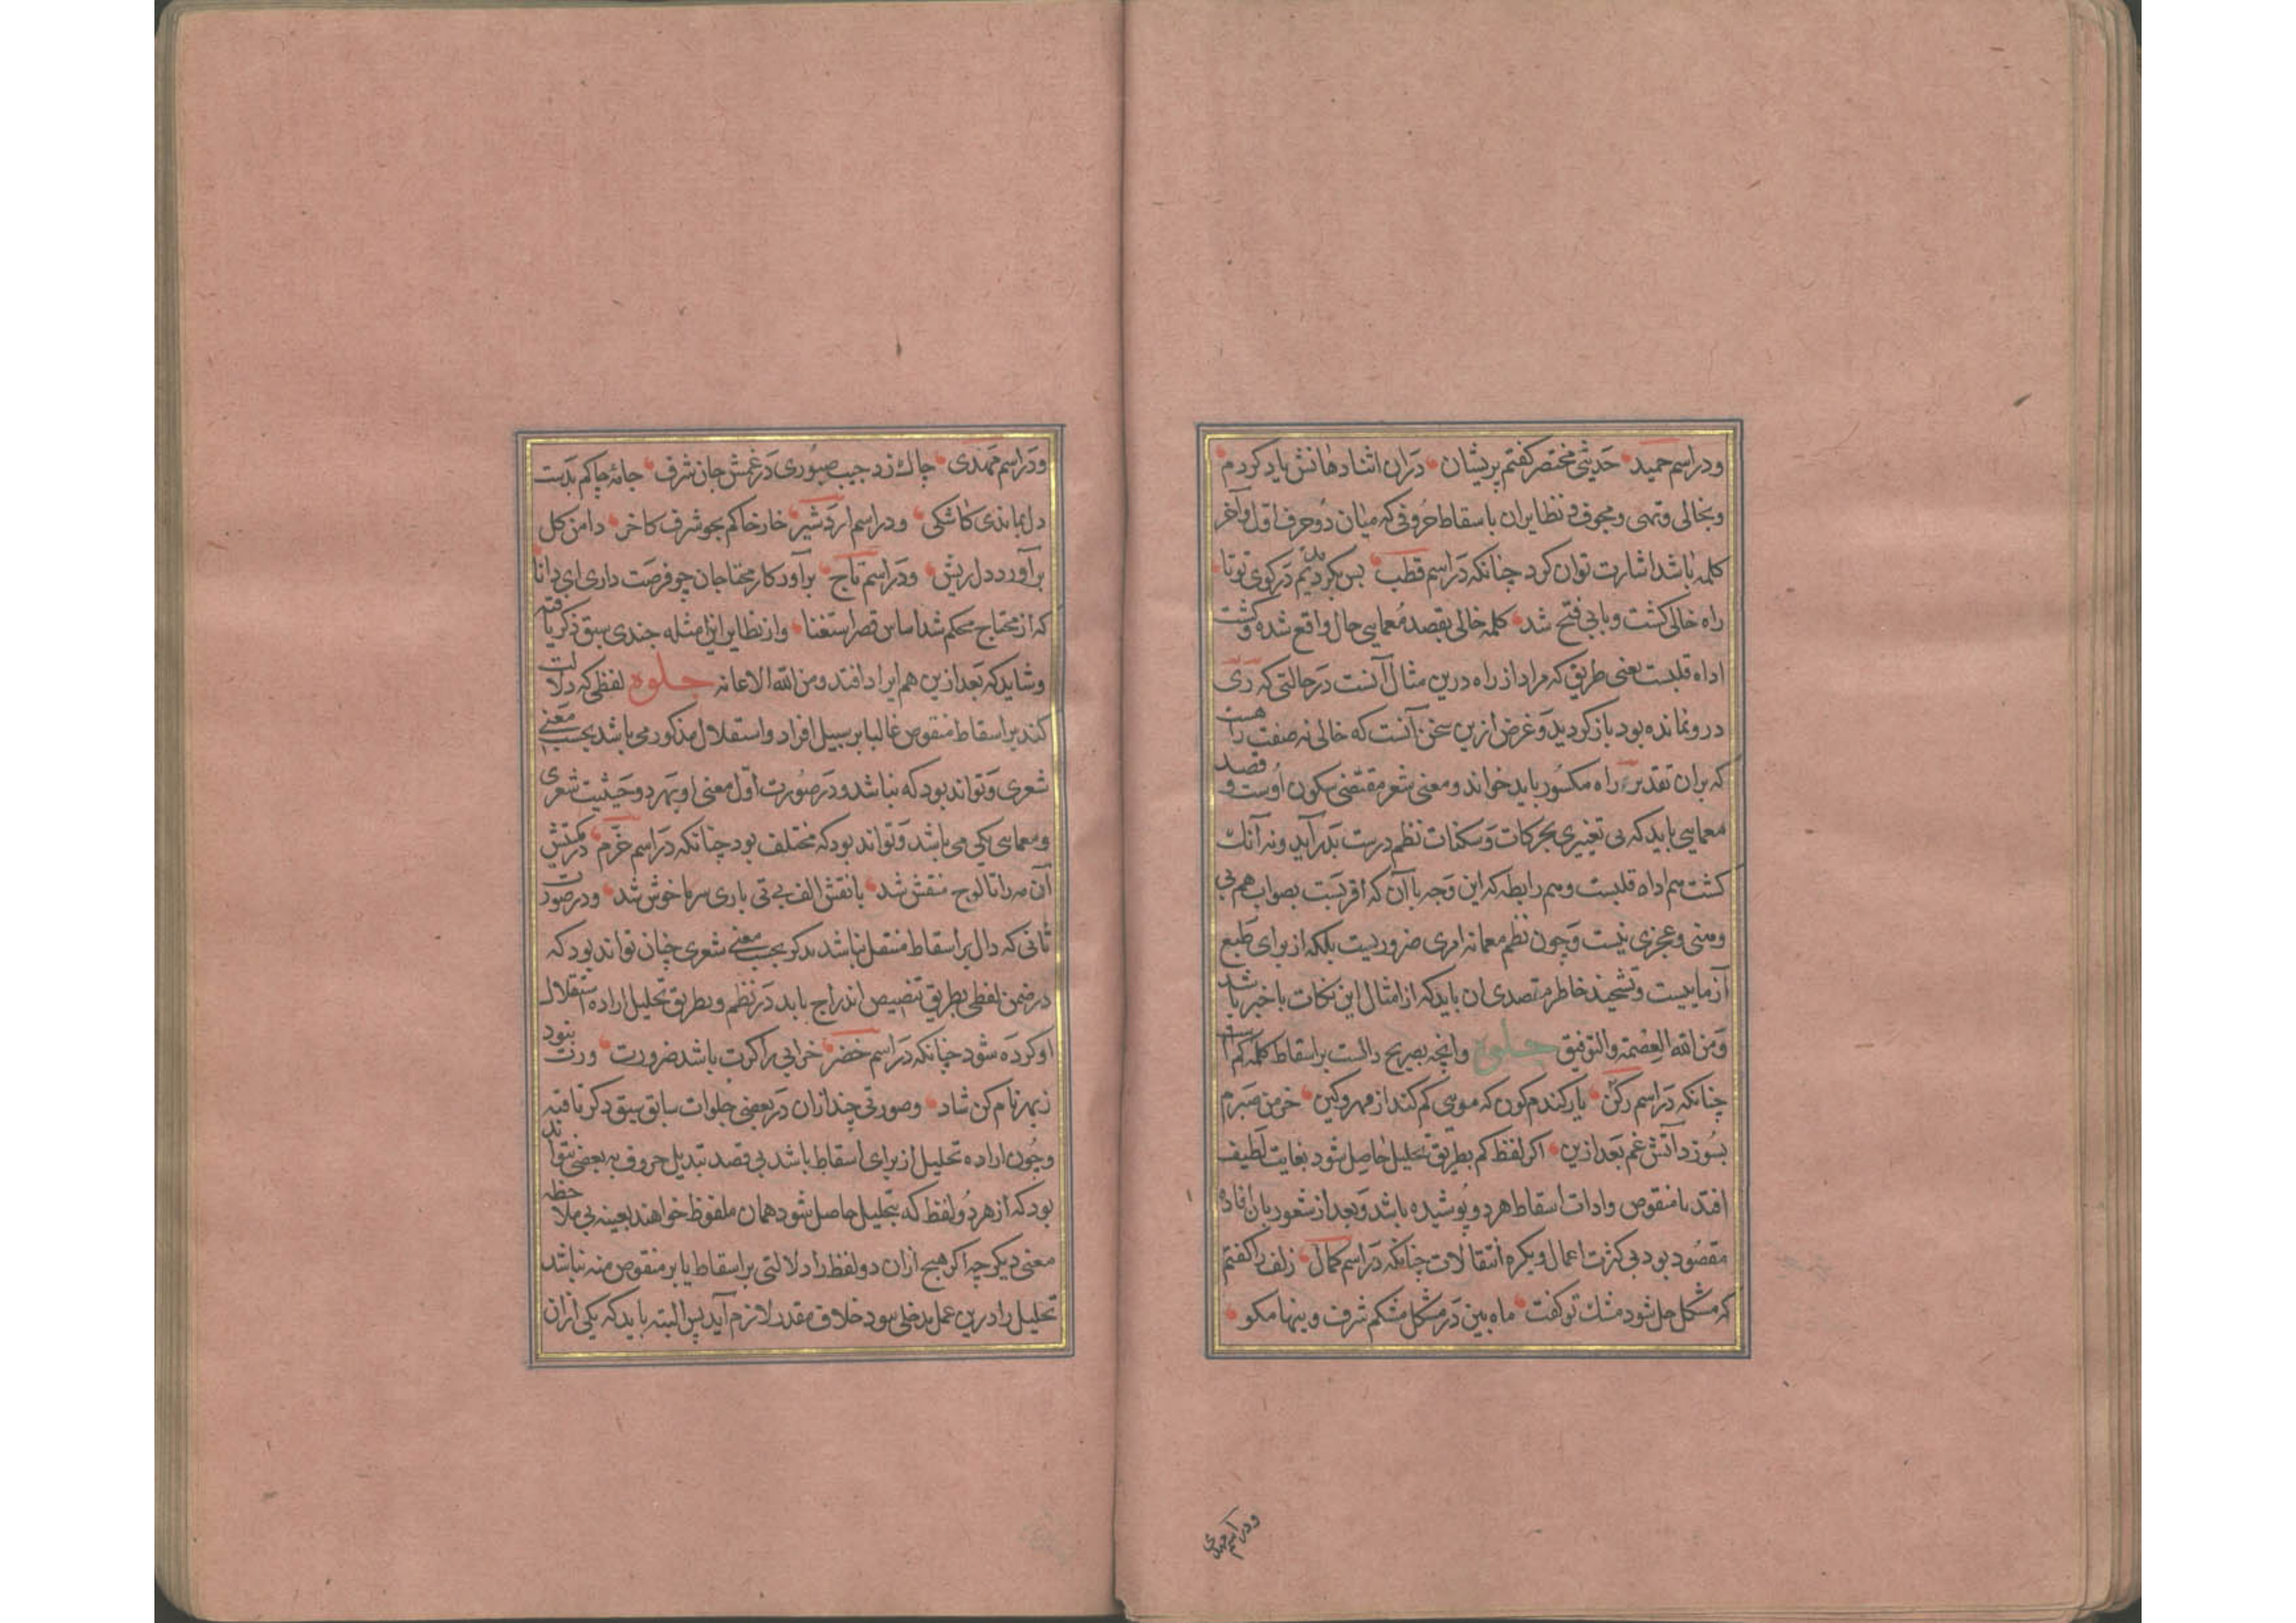 ودر اسم حمید حدیثی مختصر کفتم پریشان دران اثنا دهانش یاد کردم
وبخالی وتهی ومجوف ونظایران باسقاط حروفی که میان دو حرف اول وآخر
کلمه باشد اشارت توان کرد چنانکه در اسم قطب بس بکردیدیم در کوی تو تا
راه خالی کشت وبابی فتح شد کلمه خالی بقصد معمایی حال واقع شده وکشت
اداه قلبست یعنی طریق که مراد از راه درین مثال آنست در حالتی که ری
درو نمانده بود باز کردید وغرض ازین سخن آنست که خالی نه صفت راهست
که بران تقدیر راه مکسور باید خواند ومعنی شعر مقتضی سکون اوست وقصد
معمایی باید که بی تغییری بحرکات وسکنات نظم درست بدر آید ونه آنک
کشت هم اداه قلبست وهم رابطه که این وجه با آن که اقربست بصواب هم بی
وهنی وعجزی نیست وچون نظم معما نه امری ضروریست بلکه از برای طبع
آزماییست وتشحیذ خاطر متصدی ان باید که از امثال این نکات باخبر باشد
ومن الله العصمة والتوفیق جلوه وانچه بصریح دالست براسقاط کلمه کم است
چنانکه در اسم رکن یار کندم کون که مویی کم کند از مهر وکین خرمن صبرم
بسوزد آتش غم بعد ازین اکر لفظ کم بطریق تحلیل حاصل شود بغایت لطیف
افتد با منقوص وادات اسقاط هر دو پوشیده باشد وبعد از شعور بان افاده
مقصود بود بی کثرت اعمال وبکره انتقالات چنانکه در اسم کمال زلف را کفتم
که مشکل حل شود مشک تو کفت ماه بین در مشکل مشکم شرف وینها مکو
ودر اسم مهدی
ودر اسم مهدی چاک زد جیب صبوری در غمش جان شرف جامه چاکم بدست
دل بماندی کاشکی ودر اسم اردشیر خار خاکم بجو شرف کاخر دامن کل
برآورد دل ریش ودر اسم تاج برآور کار محتاجان چو فرصت داری ای دانا
که از محتاج محکم شد اساس قصر استغنا واز نظایر این امثله چندی سبق ذکر یافته
وشاید که بعد ازین هم ایراد افتد ومن الله الاعانه جلوه لفظی که دلالت
کند بر اسقاط منقوص غالبا بر سبیل افراد واستقلال مذکور می باشد بحسب معنی
شعری وتواند بود که نباشد ودر صورت اول معنی او بهر دو حیثیت شعری
ومعمایی یکی می باشد وتواند بود که مختلف بود چنانکه در اسم خرم
آن مه را تا لوح منقش شد با نقش الف بی تی باری سر ما خوش شد ودر صورت
ثانی که دال بر اسقاط منتقل نباشد بذکر بحسب معنی شعری چنان تواند بود که
در ضمن لفظی بطریق تنصیص اندراج یابد در نظم وبطریق تحلیل اراده استقلال
او کرده شود چنانکه در اسم خضر خرابی را کرت باشد ضرورت ورت نبود
زبهر نام کن شاد وصورتی چند ازان در بعضی جلوات سابق سبق ذکر یافته
وچون اراده تحلیل از برای اسقاط باشد بی قصد تبدیل حروف به بعضی نتواند
بود که از هر دو لفظ که بتحلیل حاصل شود همان ملفوظ خواهند بعینه بی ملاحظه
معنی دیکر چه اکر هیچ ازان دو لفظ را دلالتی بر اسقاط یا بر منقوص منه نباشد
تحلیل را درین عمل مدخلی نبود خلاف مقدر لازم آید پس البته باید که یکی ازان